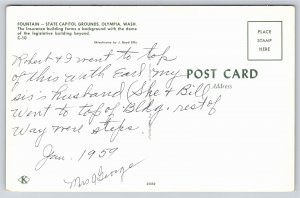 FOUNTAIN — STATE CAPITOL GROUNDS, OLYMPIA, WASH.
The insurance building forms a background with the dome
of the legislative building beyond.
C-10
Ektachrome by J. Boyd Ellis
PLACE
STAMP
HERE
POST CARD
Address
Robert & I went to top
of this with Earl my
sis's husband She & Bill
went to top of Bldg. rest of
way were steps.
Jan. 1959
Mrs George
K